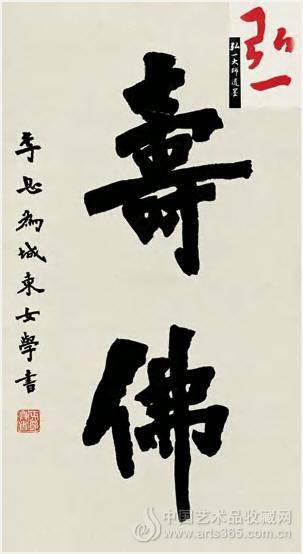 弘一
弘一大師遺墨
壽佛
李息為城東女學書
中国艺术品收藏网
www.arts365.com